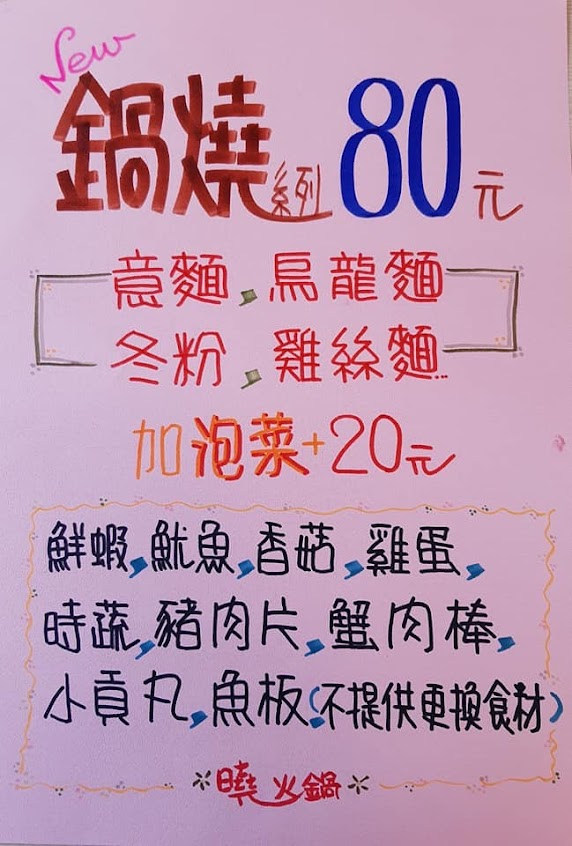 New
鍋燒系列 80元
意麵、烏龍麵
冬粉、雞絲麵...
加泡菜+20元
鮮蝦,魷魚,香菇,雞蛋,
時蔬,豬肉片,蟹肉棒,
小貢丸,魚板(不提供更換食材)
*曉火鍋*